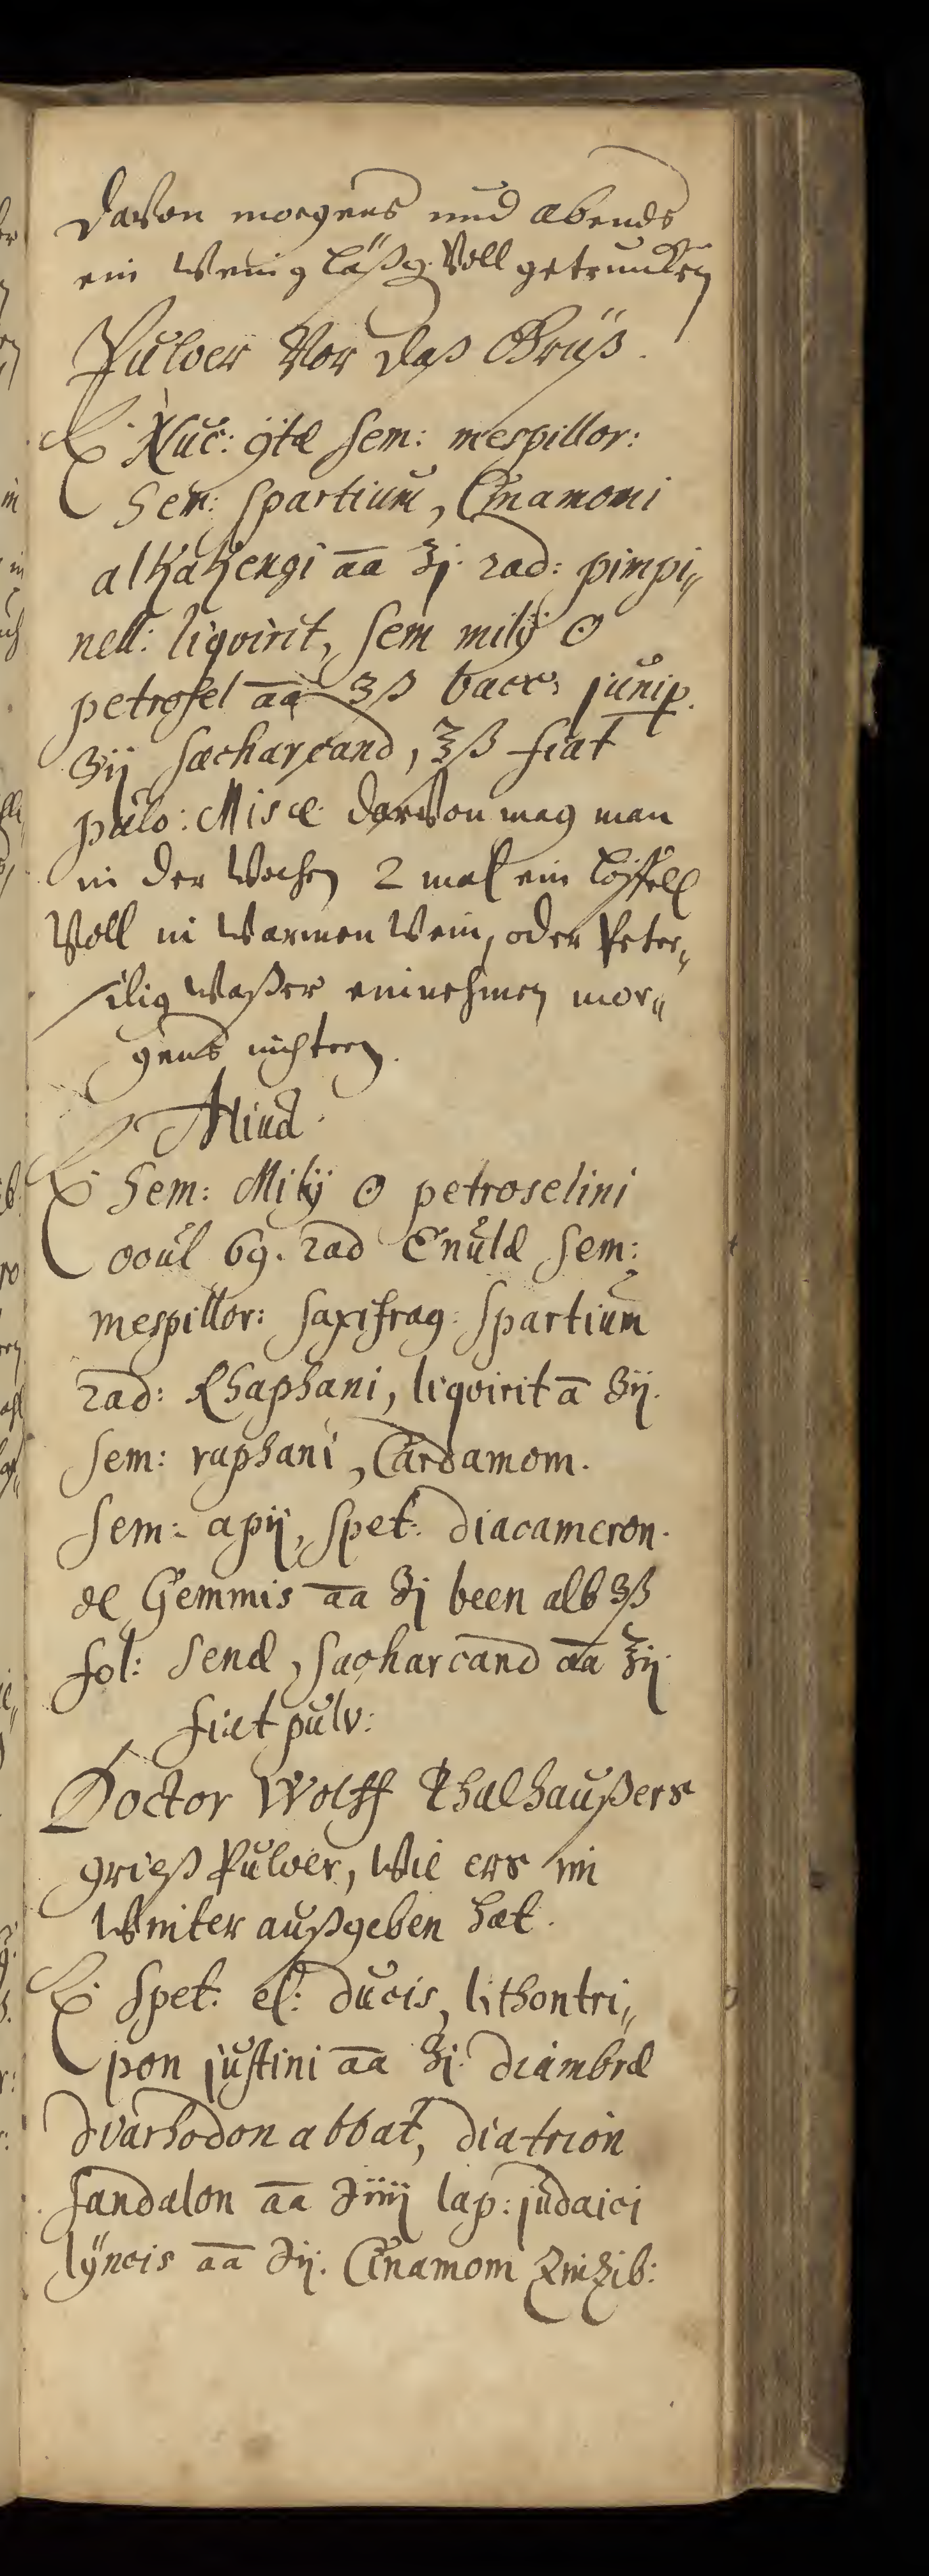 Davon morgens und abends
ein wenig läßg. Voll getruncken
Pulver Vor daß Grüß.
℞ Nuc: ÿtæ sem: mespillor:
Sem: spartium, Cinamomi
alkakengi aa ʒj. rad: pimpi„
nell: liqvirit, sem milÿ ☉
petrosel aa ʒß bacc: junip.
ʒij sacharcand, ℥ß fiat
pulv: Misce darvon mag man
in der Wochen 2 mal ein löffell
Voll in warmen Wein, oder Peter„
silig waßer einnehmen mor„
gens nichtern.
Aliud.
℞ Sem: Milÿ ☉ petroselini
ooul 69. rad Enulæ sem:
mespillor: saxifrag: spartium
rad: Rhaphani, liqvirit a ʒij.
sem: raphani, Cardamom.
sem: apij, spet: diacameron.
de Gemmis aa ʒj been alb ʒß
fol: senæ, sacharcand aa ℥ij
fiat pulv:
Doctor Wolff Thalhaußers
grieß Pulver, Wie ers im
Winter außgeben hat.
℞ Spet: el: ducis, lithontri„
pon justini aa ʒj. diambræ
diarhodon abbat, diatrion
sandalon aa ℈iiij lap: judaici
lÿncis aa ℈ij. Cinamom Zinzib: